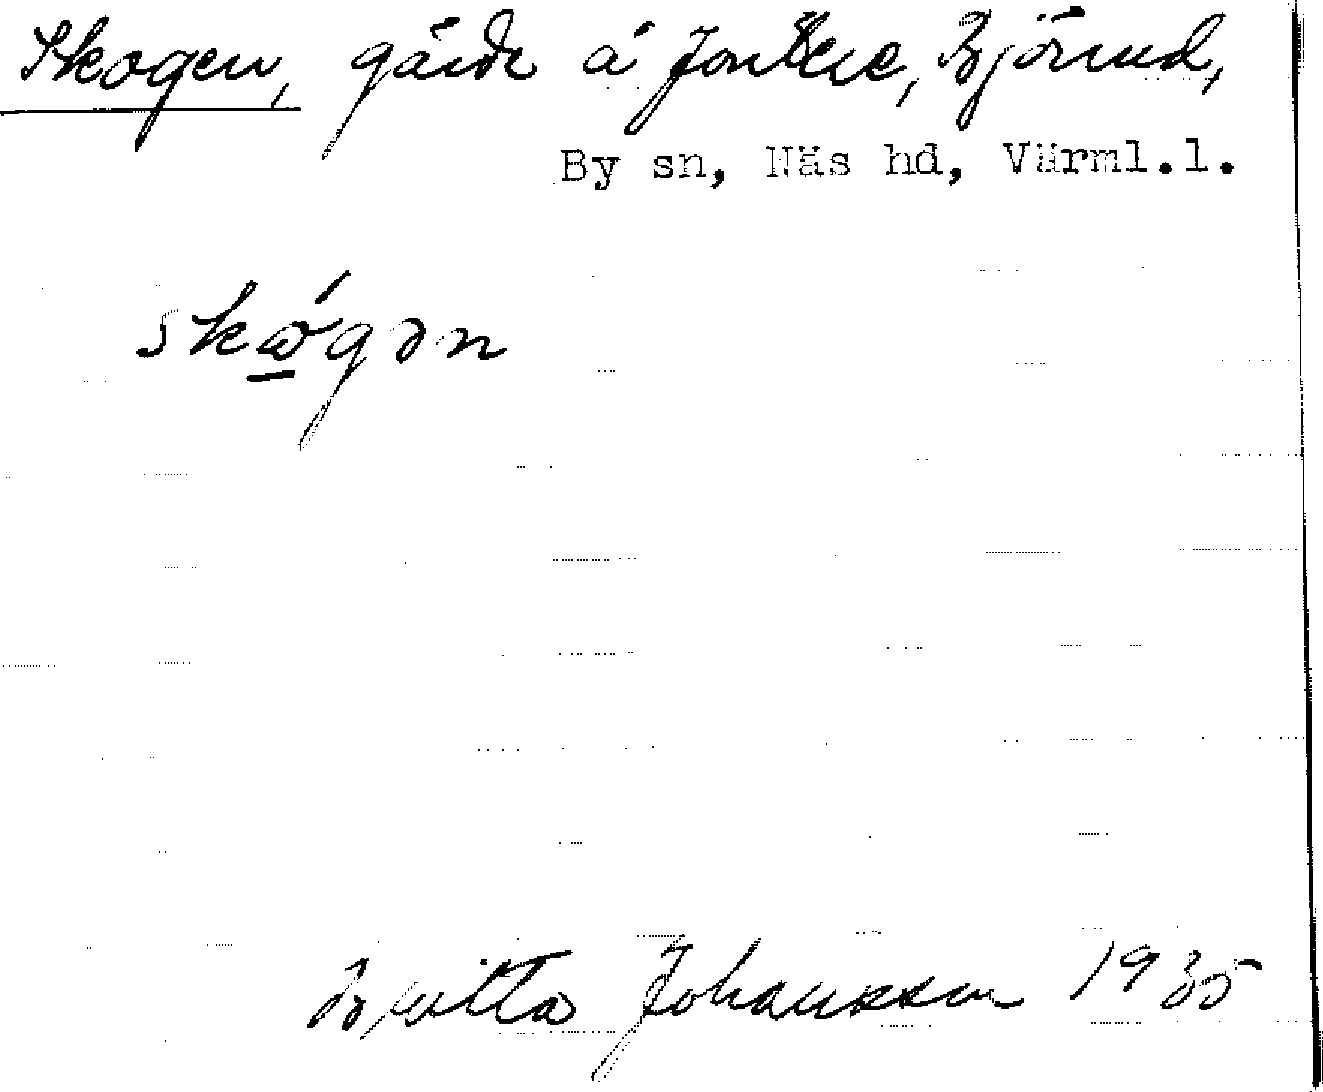 Skogen, gärde å Jonsere, Björud,
By sn, Näs hd, Värml.l.
skώ̲gən
Britta Johansson 1935